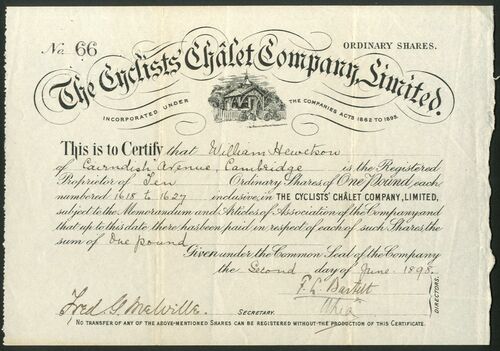 No. 66
ORDINARY SHARES.
The Cyclists' Châlet Company, Limited.
INCORPORATED UNDER THE COMPANIES ACTS 1862 TO 1893.
This is to Certify that William Hewetson
of Cavendish Avenue, Cambridge is the Registered
Proprietor of Ten Ordinary Shares of One Pound, each
numbered 1618 to 1627 inclusive, in THE CYCLISTS' CHÂLET COMPANY, LIMITED,
subject to the Memorandum and Articles of Association of the Company and
that up to this date there has been paid in respect of each of such Shares, the
sum of One pound
Given under the Common Seal of the Company
the Second day of June 1898.
F. L. Bartelt
DIRECTORS.
Fred G. Melville. SECRETARY.
NO TRANSFER OF ANY OF THE ABOVE-MENTIONED SHARES CAN BE REGISTERED WITHOUT THE PRODUCTION OF THIS CERTIFICATE.